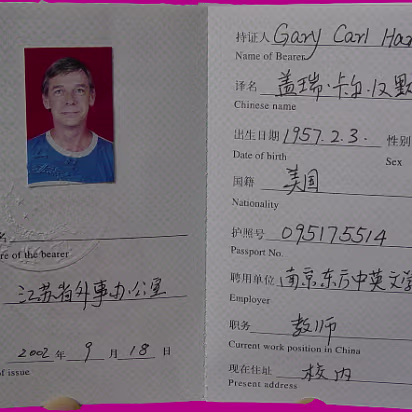 re of the bearer
江苏省外事办公室
2002年 9月 18日
of issue
持证人 Gary Carl Har
Name of Bearer
译名 盖瑞·卡尔·汉默
Chinese name
出生日期 1957.2.3. 性别
Date of birth Sex
国籍 美国
Nationality
护照号 095175514
Passport No.
聘用单位 南京东方中英文学
Employer
职务 教师
Current work position in China
现在住址 校内
Present address